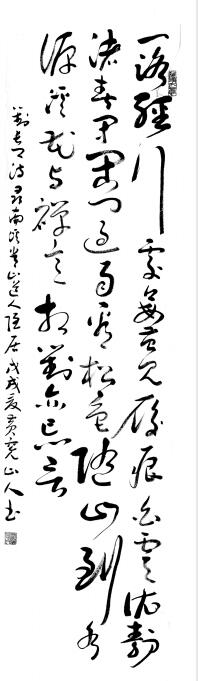 一路經行處莓苔見履痕白雲依靜
渚春草閉閑門過雨看松色隨山到水
源溪花與禪意相對亦忘言
劉長卿詩尋南溪常山道人隱居戊戌夏黃堯山人書